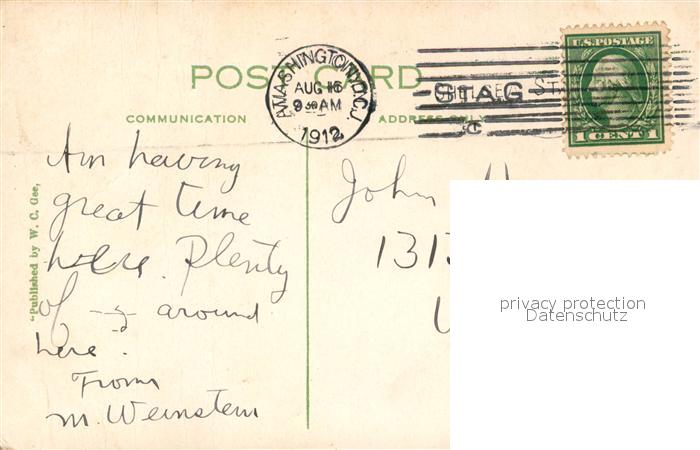 POST CARD
WASHINGTON, D.C.
AUG 16
9 30 AM
1912
U.S. POSTAGE
1 CENT 1
COMMUNICATION
ADDRESS ONLY
"Published by W. C. Gee,
Am having
great time
here. Plenty
of around
here.
From
M. Weinstein
John
131
privacy protection
Datenschutz